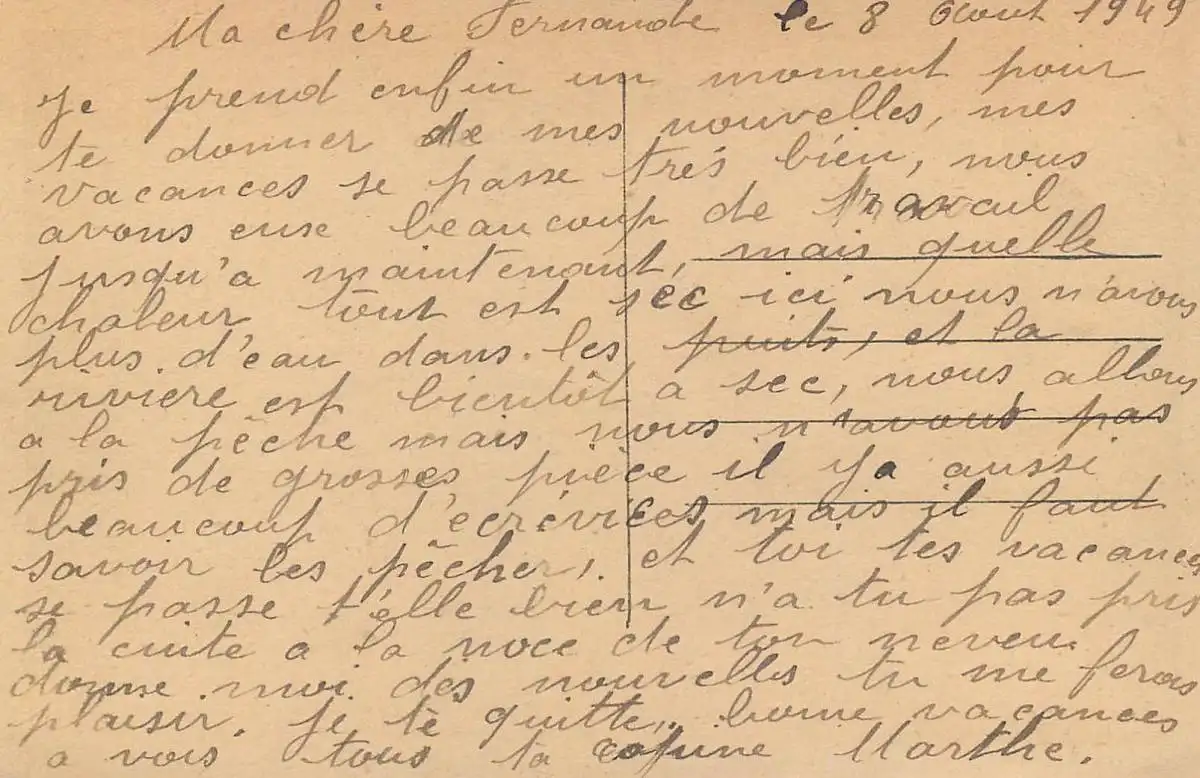 Ma chère Fernande le 8 Aout 1949
Je prend enfin un moment pour
te donner de mes nouvelles, mes
vacances se passe très bien, nous
avons euse beaucoup de travail
jusqu'a maintenant, mais quelle
chaleur tout est sec ici nous n'avons
plus d'eau dans les puits, et la
rivière est bientôt a sec, nous allons
a la pêche mais nous n'avons pas
pris de grosses pièce il y a aussi
beaucoup d'ecrévices mais il faut
savoir les pêcher, et toi tes vacances
se passe t'elle bien n'a tu pas pris
la cuite a la noce de ton neveu
donne moi des nouvelles tu me feras
plaisir. Je te quitte, bonne vacances
a vous tous ta copine Marthe.